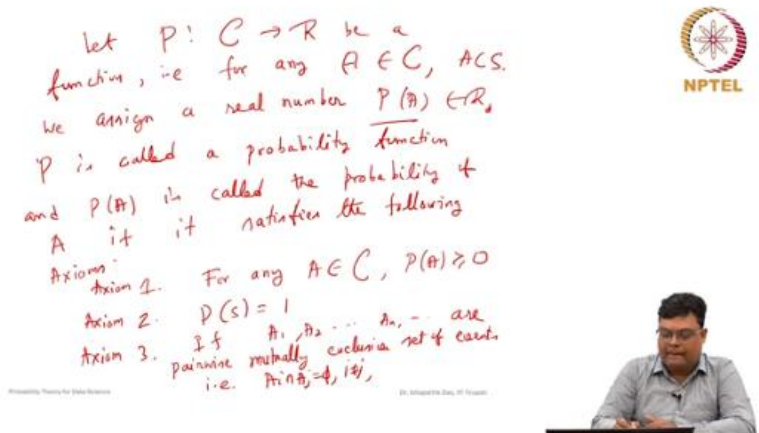 Let P : C → R be a
function, i.e for any A ∈ C, A⊂S.
we assign a real number P(A) ∈ R,
P is called a probability function
and P(A) is called the probability of
A if it satisfies the following
Axioms
Axiom 1. For any A ∈ C, P(A) ≥ 0
Axiom 2. P(S) = 1
Axiom 3. If A1, A2 ... An, ... are
pairwise mutually exclusive set of events
i.e. Ai∩Aj = ϕ, i≠j,
NPTEL
Probability Theory for Data Science